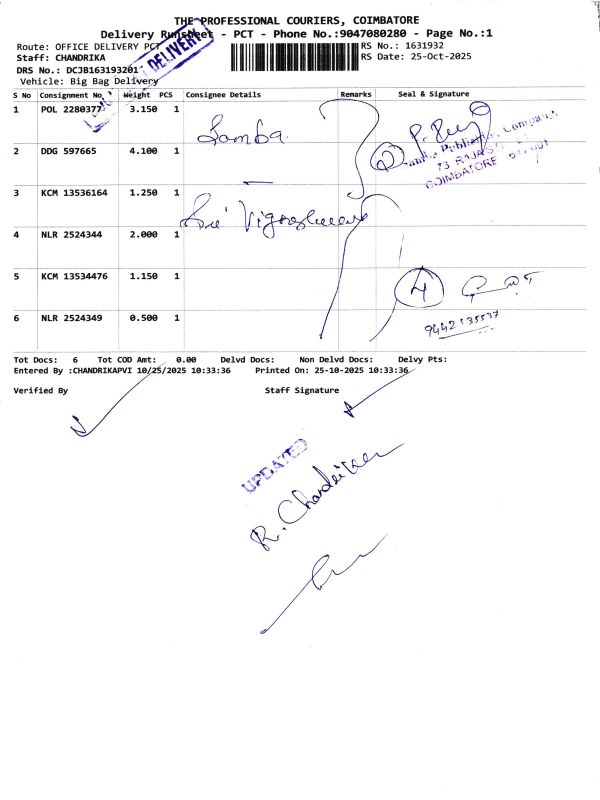 THE PROFESSIONAL COURIERS, COIMBATORE
Delivery Runsheet - PCT - Phone No.:9047080280 - Page No.:1
Route: OFFICE DELIVERY PCT
RS No.: 1631932
Staff: CHANDRIKA
RS Date: 25-Oct-2025
DRS No.: DCJB163193201
DELIVERY
Vehicle: Big Bag Delivery
S No Consignment No Weight PCS Consignee Details Remarks Seal & Signature
1 POL 2280377 3.150 1
Lamba
2 DDG 597665 4.100 1
2
COIMBATORE
3 KCM 13536164 1.250 1
Sri Vigneshwara
4 NLR 2524344 2.000 1
5 KCM 13534476 1.150 1
4
6 NLR 2524349 0.500 1
Tot Docs: 6 Tot COD Amt: 0.00 Delvd Docs: Non Delvd Docs: Delvy Pts:
Entered By :CHANDRIKAPVI 10/25/2025 10:33:36 Printed On: 25-10-2025 10:33:36
Verified By Staff Signature
UPDATED